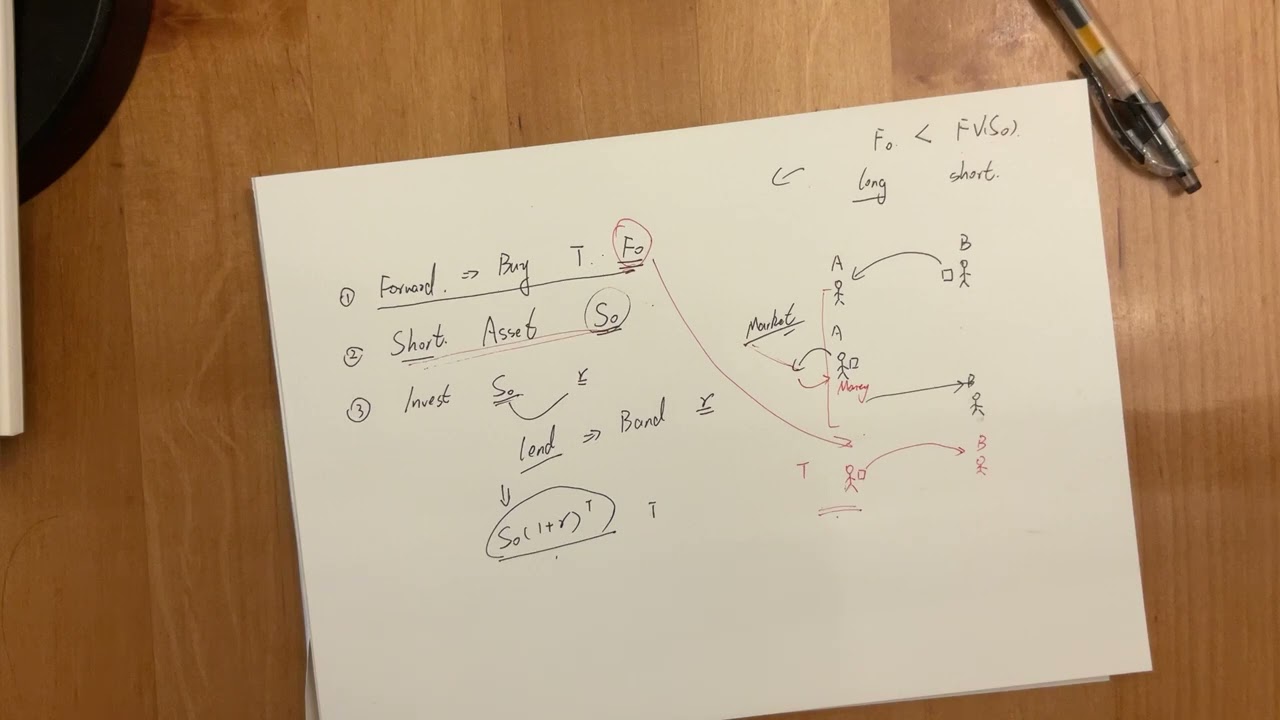 F₀ < FV(S₀).
long short.
① Forward. ⇒ Buy T. F₀
② Short. Asset S₀
③ Invest S₀ r
lend ⇒ Bond r
S₀(1+r)ᵀ T
B
A
Market A
Money B
T B